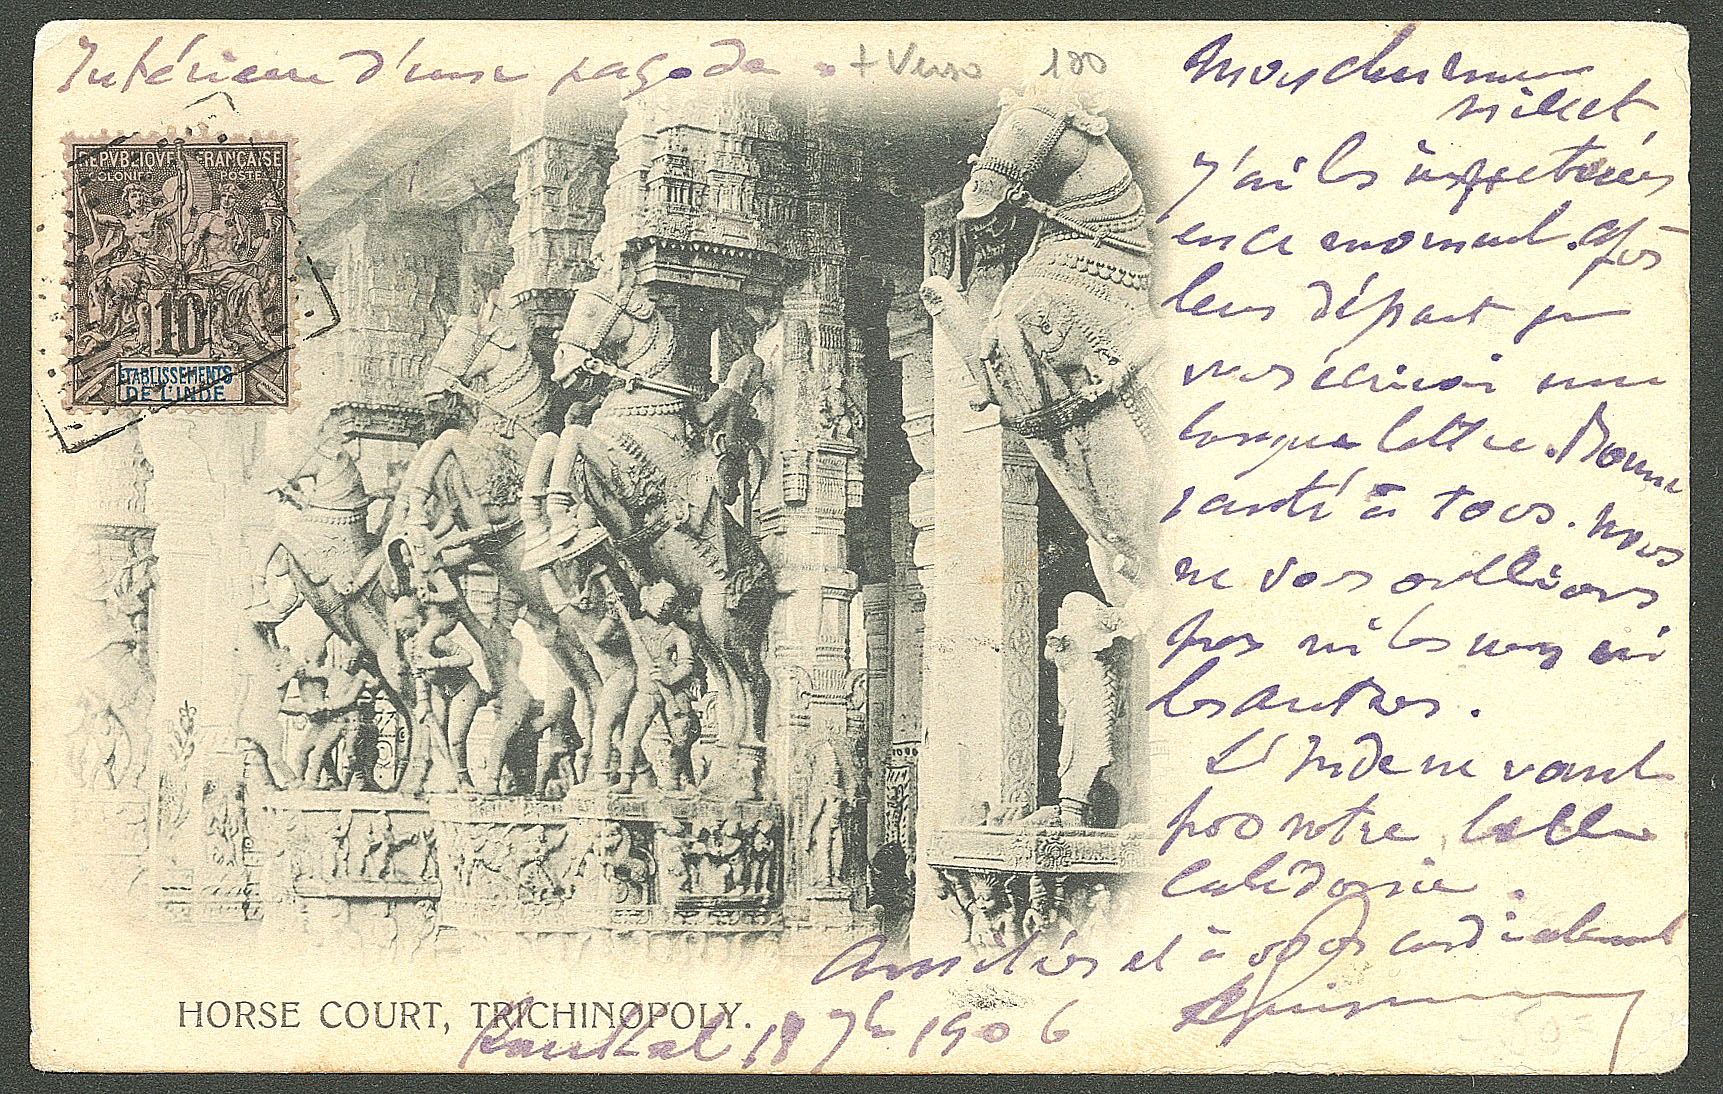 Intérieur d'une pagode + Verso 180
REPVBLIQVE FRANÇAISE
COLONIES POSTES
10
ETABLISSEMENTS
DE L'INDE
Mon cher
J'ai les inspecteurs
en ce moment. Après
leur départ je
vous écrirai une
longue lettre. Bonne
santé à tous. Nous
ne vous oublions
pas ni les uns ni
les autres.
L'Inde ne vaut
pas notre belle
Calédonie.
Amitiés et à vous cordialement
HORSE COURT, TRICHINOPOLY.
Karikal 18 7bre 1906